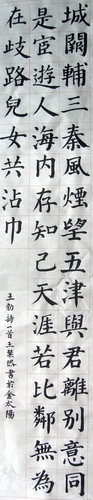 城闕輔三秦風煙望五津與君離別意同
是宦遊人海內存知己天涯若比鄰無為
在歧路兒女共沾巾
王勃詩一首王然書於金太陽